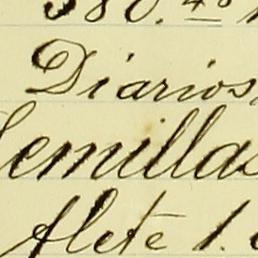 380.40
Diarios
Semillas
flete 1.